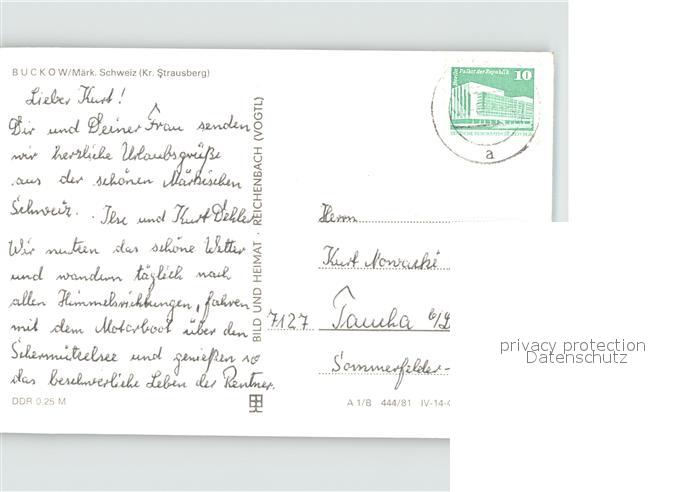 BUCKOW/Märk. Schweiz (Kr. Strausberg)
Lieber Kurt!
Dir und Deiner Frau senden
wir herzliche Urlaubsgrüße
aus der schönen Märkischen
Schweiz. Ilse und Kurt Dehler
Wir nutzen das schöne Wetter
und wandern täglich nach
allen Himmelsrichtungen, fahren
mit dem Motorboot über den
Schermützelsee und genießen so
das beschwerliche Leben der Rentner.
DDR 0,25 M
BILD UND HEIMAT · REICHENBACH (VOGTL)
Berlin Palast der Republik
10
a
Herrn
Kurt
7127 Taucha b/L
Sommerfelder-
A 1/B 444/81 IV-14-
privacy protection
Datenschutz